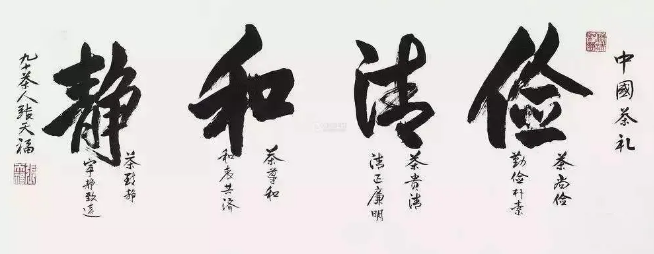 中國茶礼
儉
茶尚儉
勤儉朴素
清
茶貴清
清正廉明
和
茶尊和
和衷共济
静
茶致静
宁静致遠
九十茶人張天福